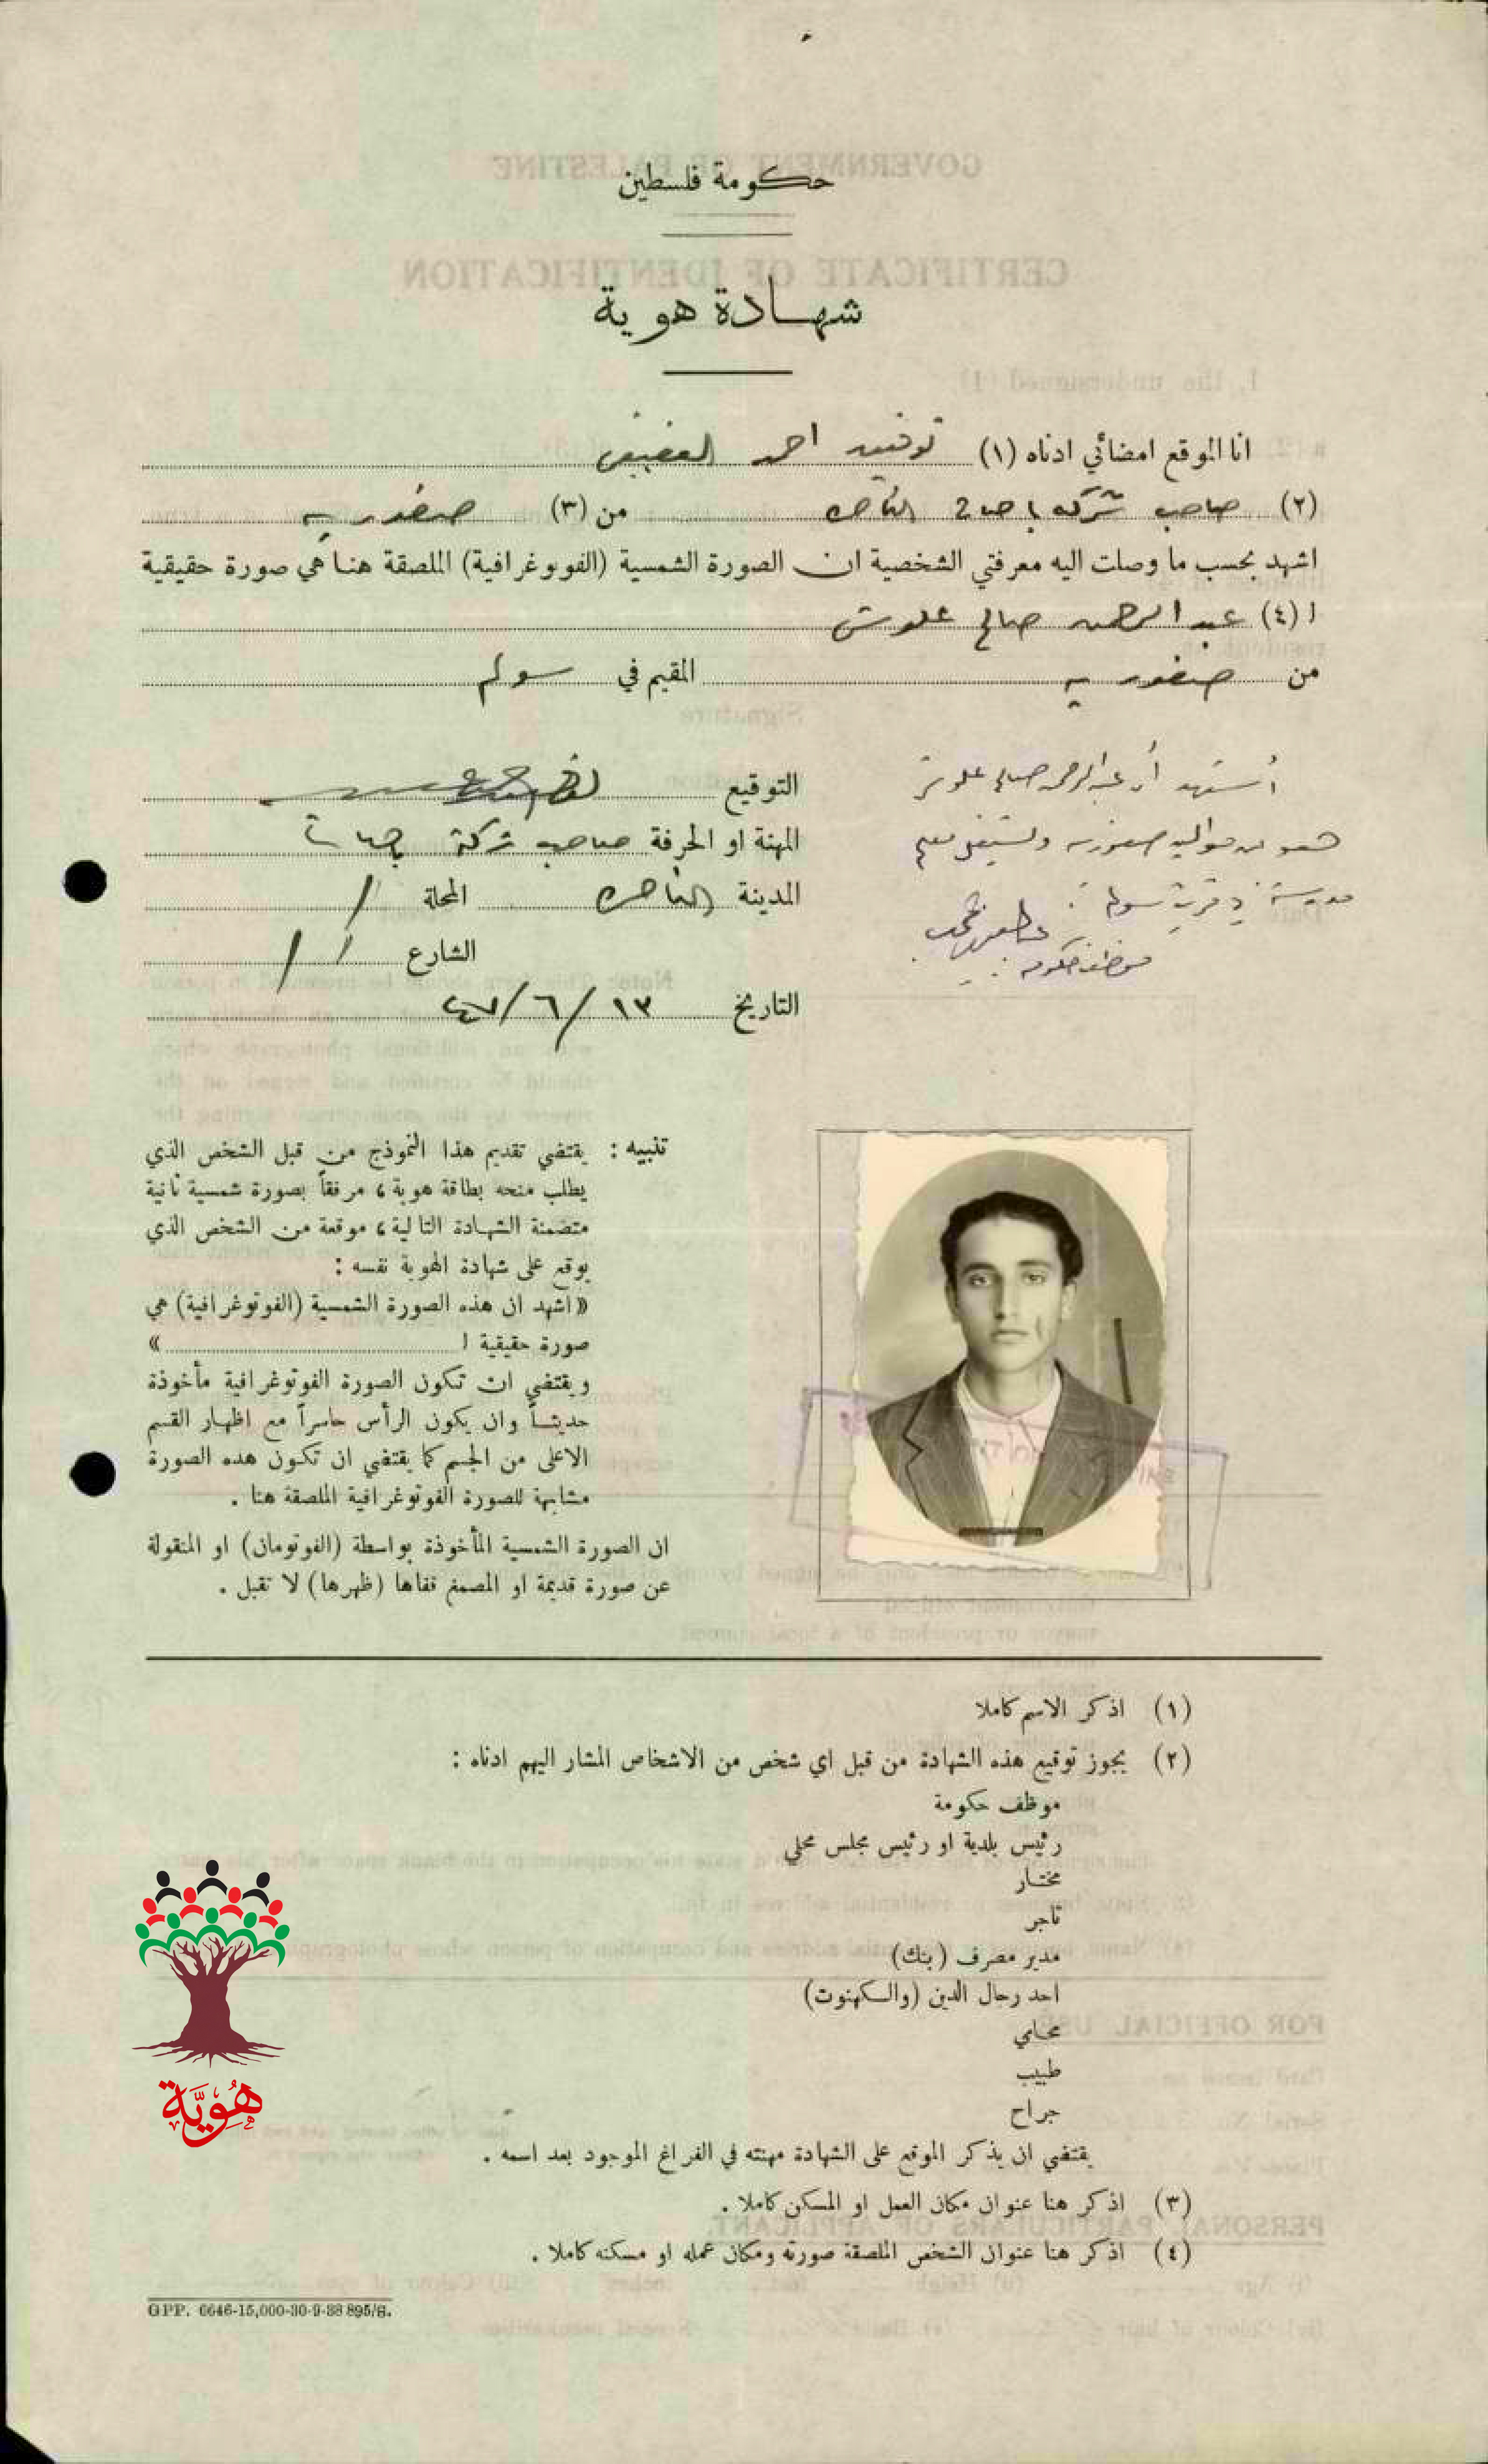 حكومة فلسطين
شهادة هوية
انا الموقع امضائي ادناه (١) توفيق احمد العفيفي
(٢) صاحب شركة باصات الناصرة من (٣) صفورية
اشهد بحسب ما وصلت اليه معرفتي الشخصية ان الصورة الشمسية (الفوتوغرافية) الملصقة هنا هي صورة حقيقية
ا (٤) عبد الرحمن صالح علوش
من صفورية المقيم في سولم
أشهد أن عبد الرحمن صالح علوش
هو من مواليد صفورية ويشتغل معلم
مدرسة في قرية سولم .
موظف حكومة
التوقيع
المهنة او الحرفة صاحب شركة باصات
المدينة الناصرة المحلة /
الشارع / /
التاريخ ١٣ / ٦ / ٤٧
تنبيه : يقتضي تقديم هذا النموذج من قبل الشخص الذي
يطلب منحه بطاقة هوية ، مرفقاً بصورة شمسية ثانية
متضمنة الشهادة التالية ، موقعة من الشخص الذي
يوقع على شهادة الهوية نفسه :
« اشهد ان هذه الصورة الشمسية (الفوتوغرافية) هي
صورة حقيقية ا »
ويقتضي ان تكون الصورة الفوتوغرافية مأخوذة
حديثاً وان يكون الرأس حاسراً مع اظهار القسم
الاعلى من الجسم كما يقتضي ان تكون هذه الصورة
مشابهة للصورة الفوتوغرافية الملصقة هنا .
ان الصورة الشمسية المأخوذة بواسطة (الفوتومان) او المنقولة
عن صورة قديمة او المصمغ قفاها (ظهرها) لا تقبل .
(١) اذكر الاسم كاملا
(٢) يجوز توقيع هذه الشهادة من قبل اي شخص من الاشخاص المشار اليهم ادناه :
موظف حكومة
رئيس بلدية او رئيس مجلس محلي
مختار
تاجر
مدير مصرف (بنك)
احد رجال الدين (والكهنوت)
محامي
طبيب
جراح
يقتضي ان يذكر الموقع على الشهادة مهنته في الفراغ الموجود بعد اسمه .
(٣) اذكر هنا عنوان مكان العمل او المسكن كاملا .
(٤) اذكر هنا عنوان الشخص الملصقة صورته ومكان عمله او مسكنه كاملا .
GPP. 6646-15,000-30-9-38 895/S.
هُوِيَّة